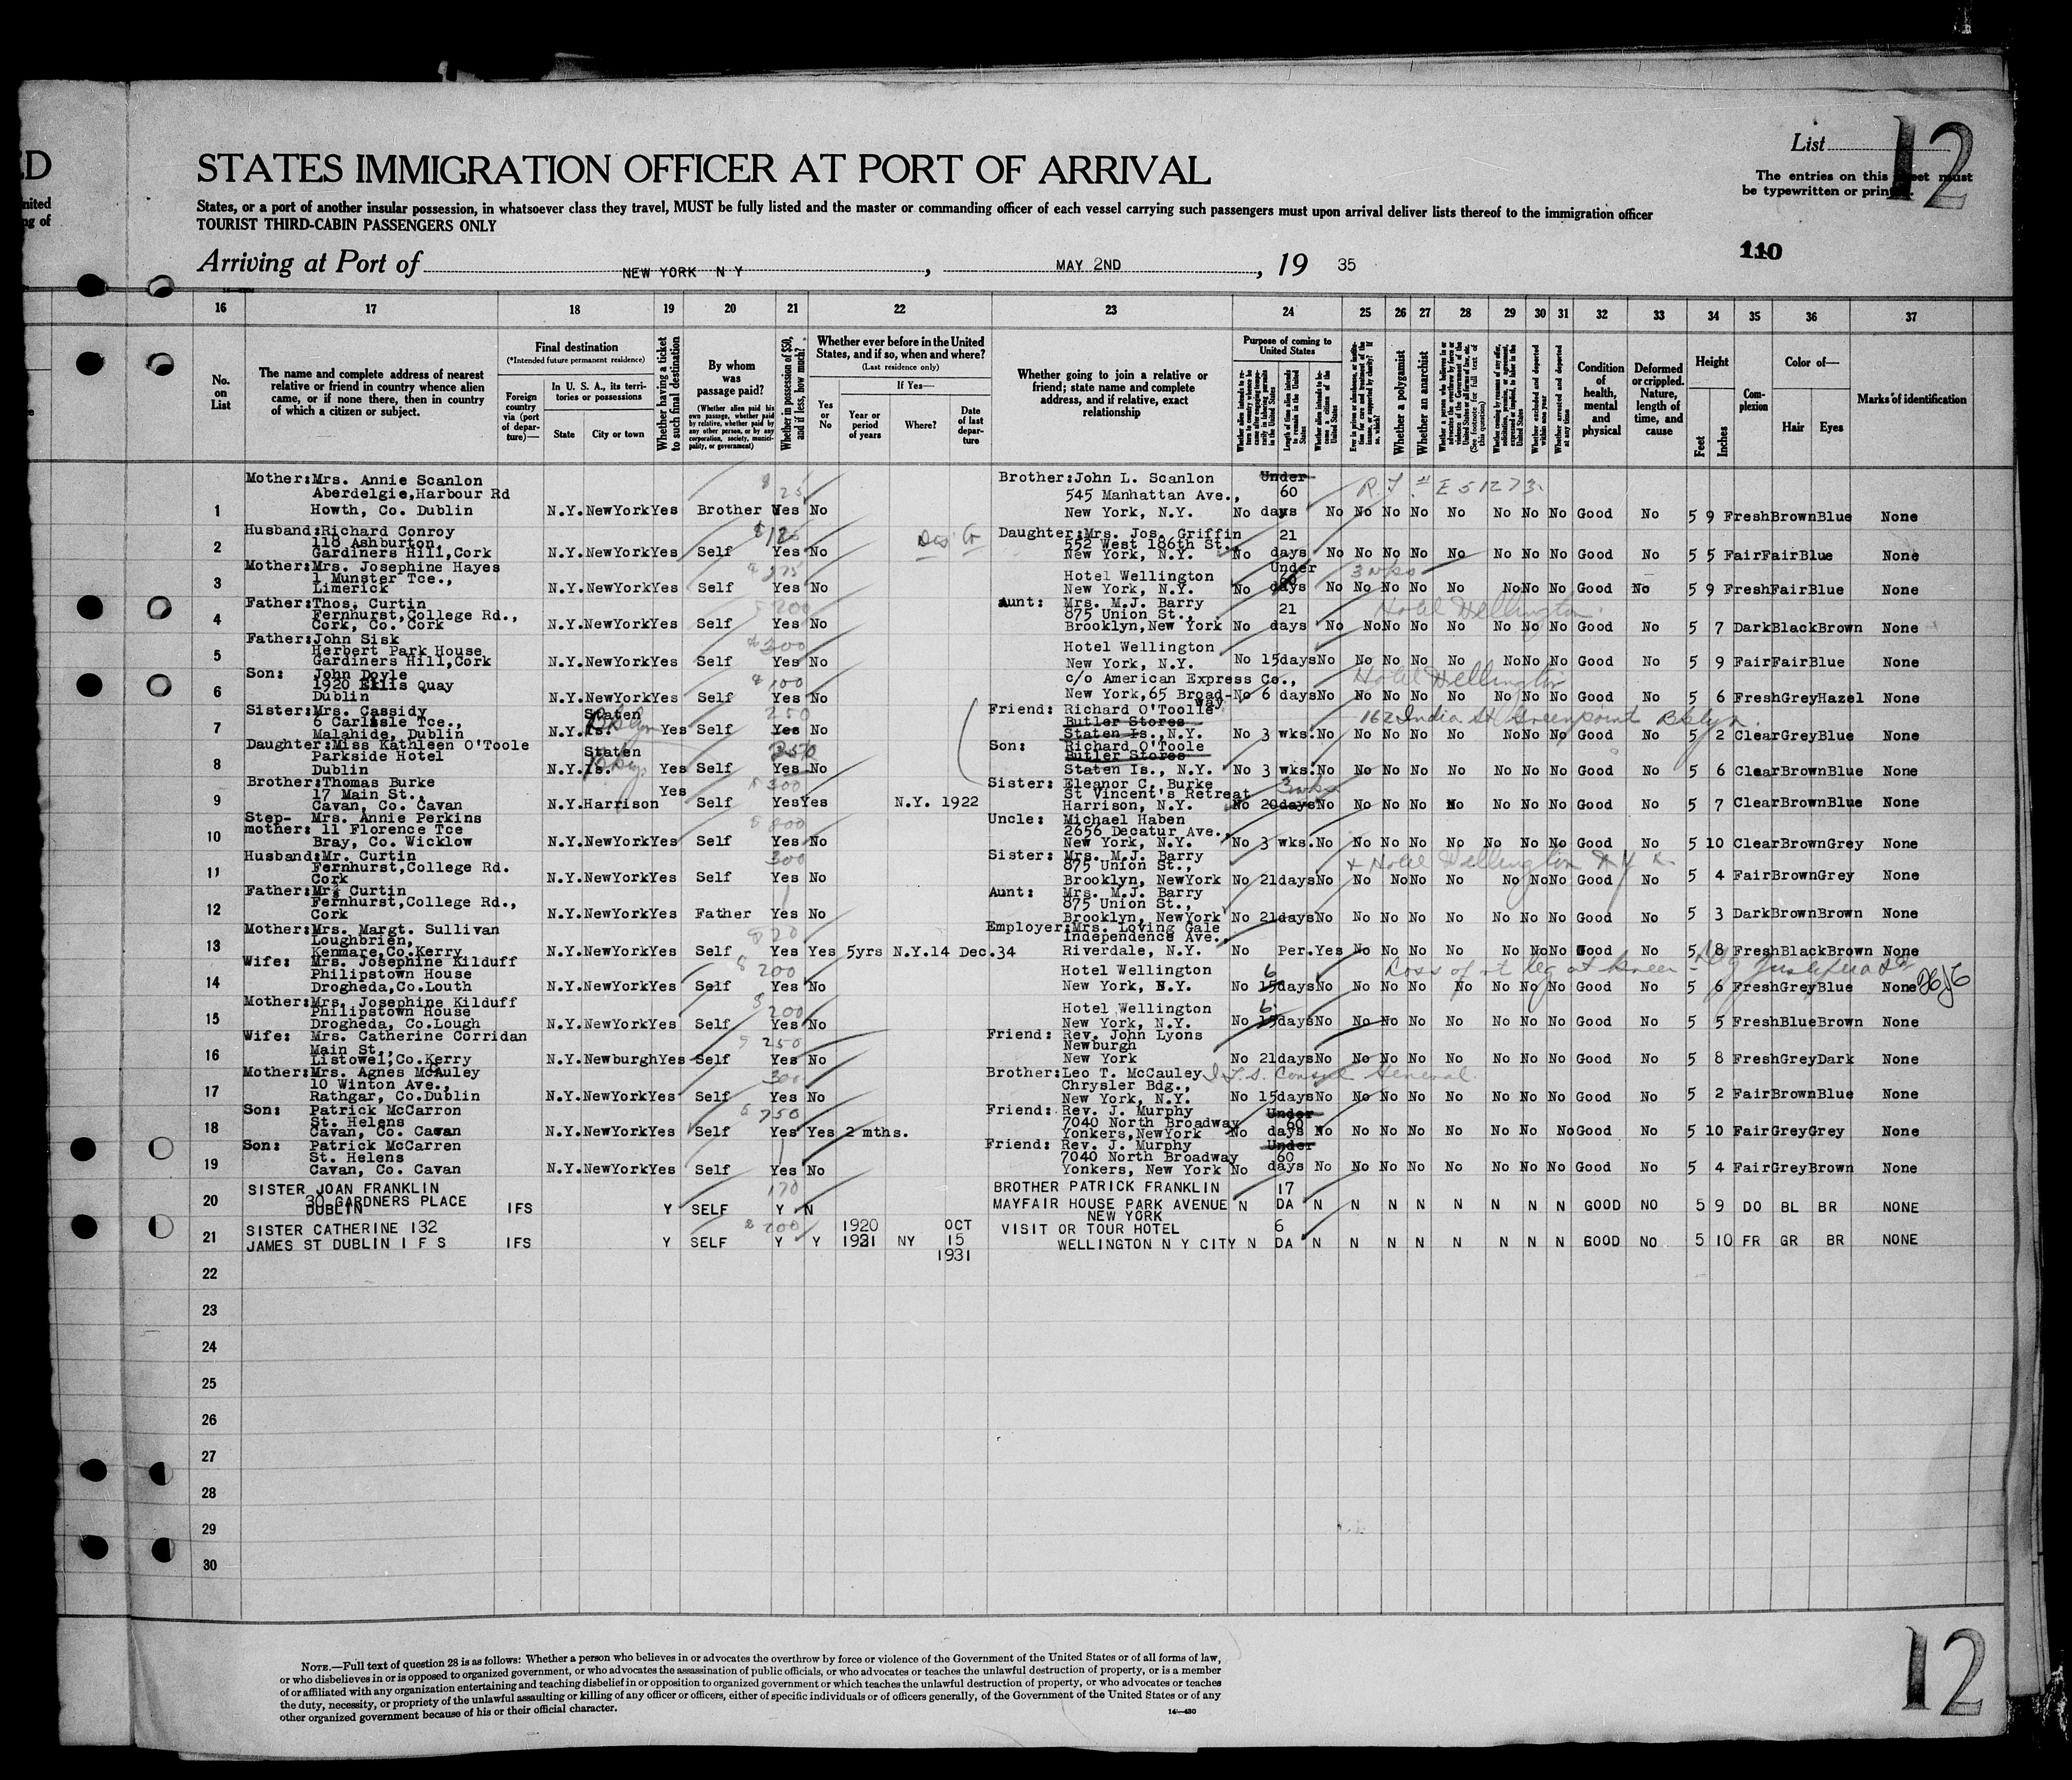 ED
nited
ng of
List
12
STATES IMMIGRATION OFFICER AT PORT OF ARRIVAL
The entries on this sheet must
be typewritten or printed.
States, or a port of another insular possession, in whatsoever class they travel, MUST be fully listed and the master or commanding officer of each vessel carrying such passengers must upon arrival deliver lists thereof to the immigration officer
TOURIST THIRD-CABIN PASSENGERS ONLY
110
Arriving at Port of NEW YORK N Y, MAY 2ND, 19 35
16 17 18 19 20 21 22 23 24 25 26 27 28 29 30 31 32 33 34 35 36 37
No. on List
The name and complete address of nearest relative or friend in country whence alien came, or if none there, then in country of which a citizen or subject.
Final destination
(*Intended future permanent residence)
Foreign country via (port of departure)—
In U. S. A., its territories or possessions
State
City or town
Whether having a ticket to such final destination
By whom was passage paid?
(Whether alien paid his own passage, whether paid by relative, whether paid by any other person, or by any corporation, society, municipality, or government)
Whether in possession of $50, and if less, how much?
Whether ever before in the United States, and if so, when and where?
(Last residence only)
Yes or No
If Yes—
Year or period of years
Where?
Date of last departure
Whether going to join a relative or friend; state name and complete address, and if relative, exact relationship
Purpose of coming to United States
Length of time alien intends to remain in the United States
Whether alien intends to become a citizen of the United States
Whether a polygamist
Whether an anarchist
Whether arrested and deported at any time
Condition of health, mental and physical
Deformed or crippled. Nature, length of time, and cause
Height
Feet
Inches
Complexion
Color of—
Hair
Eyes
Marks of identification
Mother:Mrs. Annie Scanlon Brother:John L. Scanlon Under
Aberdelgie,Harbour Rd 25 545 Manhattan Ave., 60 E 51273
1 Howth, Co. Dublin N.Y. NewYork Yes Brother Yes No New York, N.Y. No days No No No No No No No No Good No 5 9 Fresh Brown Blue None
Husband:Richard Conroy Daughter:Mrs. Jos. Griffin 21
118 Ashburton, 552 West 186th St.,
2 Gardiners Hill,Cork N.Y. NewYork Yes Self Yes No New York, N.Y. No days No No No No No No No No Good No 5 5 Fair Fair Blue None
Mother:Mrs. Josephine Hayes Under
1 Munster Tce., Hotel Wellington 60 3 wks
3 Limerick N.Y. NewYork Yes Self Yes No New York, N.Y. No days No No No No No No No No Good No 5 9 Fresh Fair Blue None
Father:Thos. Curtin 200 Aunt: Mrs. M.J. Barry Hotel Wellington
Fernhurst,College Rd., 875 Union St., 21
4 Cork, Co. Cork N.Y. NewYork Yes Self Yes No Brooklyn,New York No days No No No No No No No No Good No 5 7 Dark Black Brown None
Father:John Sisk 300
Herbert Park House Hotel Wellington
5 Gardiners Hill,Cork N.Y. NewYork Yes Self Yes No New York, N.Y. No 15days No No No No No No No No Good No 5 9 Fair Fair Blue None
Son: John Doyle 100 c/o American Express Co., Hotel Wellington
1920 Ellis Quay
6 Dublin N.Y. NewYork Yes Self Yes No New York,65 Broadway No 6 days No No No No No No No No Good No 5 6 Fresh Grey Hazel None
Sister:Mrs. Cassidy Staten 250 Friend: Richard O'Toolle 162 India St Greenpoint Bklyn.
6 Carlisle Tce., Bklyn Butler Stores
7 Malahide, Dublin N.Y. Is. Yes Self Yes No Staten Is.,N.Y. No 3 wks. No No No No No No No No Good No 5 2 Clear Grey Blue None
Daughter:Miss Kathleen O'Toole Staten Son: Richard O'Toole
Parkside Hotel Butler Stores
8 Dublin N.Y. Is. Yes Self Yes No Staten Is., N.Y. No 3 wks. No No No No No No No No Good No 5 6 Clear Brown Blue None
Brother:Thomas Burke Yes 300 Sister: Eleanor C. Burke 3 wks
17 Main St., St Vincent's Retreat
9 Cavan, Co. Cavan N.Y. Harrison Self Yes Yes N.Y. 1922 Harrison, N.Y. No 20days No No No No No No No No Good No 5 7 Clear Brown Blue None
Step- Mrs. Annie Perkins 800 Uncle: Michael Haben
mother: 11 Florence Tce 2656 Decatur Ave.,
10 Bray, Co. Wicklow N.Y. NewYork Yes Self Yes No New York, N.Y. No 3 wks. No No No No No No No No Good No 5 10 Clear Brown Grey None
Husband:Mr. Curtin 300 Sister: Mrs. M.J. Barry Hotel Wellington N Y
Fernhurst,College Rd. 875 Union St.,
11 Cork N.Y. NewYork Yes Self Yes No Brooklyn, NewYork No 21days No No No No No No No No Good No 5 4 Fair Brown Grey None
Father:Mr. Curtin Aunt: Mrs. M.J. Barry
Fernhurst,College Rd., 875 Union St.,
12 Cork N.Y. NewYork Yes Father Yes No Brooklyn, NewYork No 21days No No No No No No No No Good No 5 3 Dark Brown Brown None
Mother:Mrs. Margt. Sullivan 20 Employer:Mrs. Loving Gale
Loughbrien, Independence Ave.,
13 Kenmare,Co.Kerry N.Y. NewYork Yes Self Yes Yes 5yrs N.Y. 14 Dec.34 Riverdale, N.Y. No Per. Yes No No No No No No No Good No 5 8 Fresh Black Brown None
Wife: Mrs. Josephine Kilduff 200 Hotel Wellington 6 Loss of rt leg at knee
Philipstown House
14 Drogheda,Co.Louth N.Y. NewYork Yes Self Yes No New York, N.Y. No 15days No No No No No No No No Good No 5 6 Fresh Grey Blue None
Mother:Mrs. Josephine Kilduff 200 Hotel Wellington 6
Philipstown House
15 Drogheda, Co.Lough N.Y. NewYork Yes Self Yes No New York, N.Y. No 15days No No No No No No No No Good No 5 5 Fresh Blue Brown None
Wife: Mrs. Catherine Corridan 250 Friend: Rev. John Lyons
Main St., Newburgh
16 Listowel,Co.Kerry N.Y. Newburgh Yes Self Yes No New York No 21days No No No No No No No No Good No 5 8 Fresh Grey Dark None
Mother:Mrs. Agnes McAuley 300 Brother:Leo T. McCauley I.F.S. Consul General
10 Winton Ave., Chrysler Bdg.,
17 Rathgar, Co.Dublin N.Y. NewYork Yes Self Yes No New York, N.Y. No 15days No No No No No No No No Good No 5 2 Fair Brown Blue None
Son: Patrick McCarron 750 Friend: Rev. J. Murphy Under
St. Helens 7040 North Broadway 60
18 Cavan, Co. Cavan N.Y. NewYork Yes Self Yes Yes 2 mths. Yonkers,NewYork No days No No No No No No No No Good No 5 10 Fair Grey Grey None
Son: Patrick McCarren Friend: Rev. J. Murphy Under
St. Helens 7040 North Broadway 60
19 Cavan, Co. Cavan N.Y. NewYork Yes Self Yes No Yonkers, New York No days No No No No No No No No Good No 5 4 Fair Grey Brown None
SISTER JOAN FRANKLIN 170 BROTHER PATRICK FRANKLIN 17
20 30 GARDNERS PLACE IFS Y SELF Y N MAYFAIR HOUSE PARK AVENUE N DA N N N N N N N N GOOD NO 5 9 DO BL BR NONE
DUBLIN NEW YORK
SISTER CATHERINE 132 200 1920 OCT VISIT OR TOUR HOTEL 6
21 JAMES ST DUBLIN I F S IFS Y SELF Y Y 1921 NY 15 WELLINGTON N Y CITY N DA N N N N N N N N GOOD NO 5 10 FR GR BR NONE
1931
22
23
24
25
26
27
28
29
30
NOTE.—Full text of question 28 is as follows: Whether a person who believes in or advocates the overthrow by force or violence of the Government of the United States or of all forms of law,
or who disbelieves in or is opposed to organized government, or who advocates the assassination of public officials, or who advocates or teaches the unlawful destruction of property, or is a member
of or affiliated with any organization entertaining and teaching disbelief in or opposition to organized government or which teaches the unlawful destruction of property, or who advocates or teaches
the duty, necessity, or propriety of the unlawful assaulting or killing of any officer or officers, either of specific individuals or of officers generally, of the Government of the United States or of any
other organized government because of his or their official character.
14—430
12